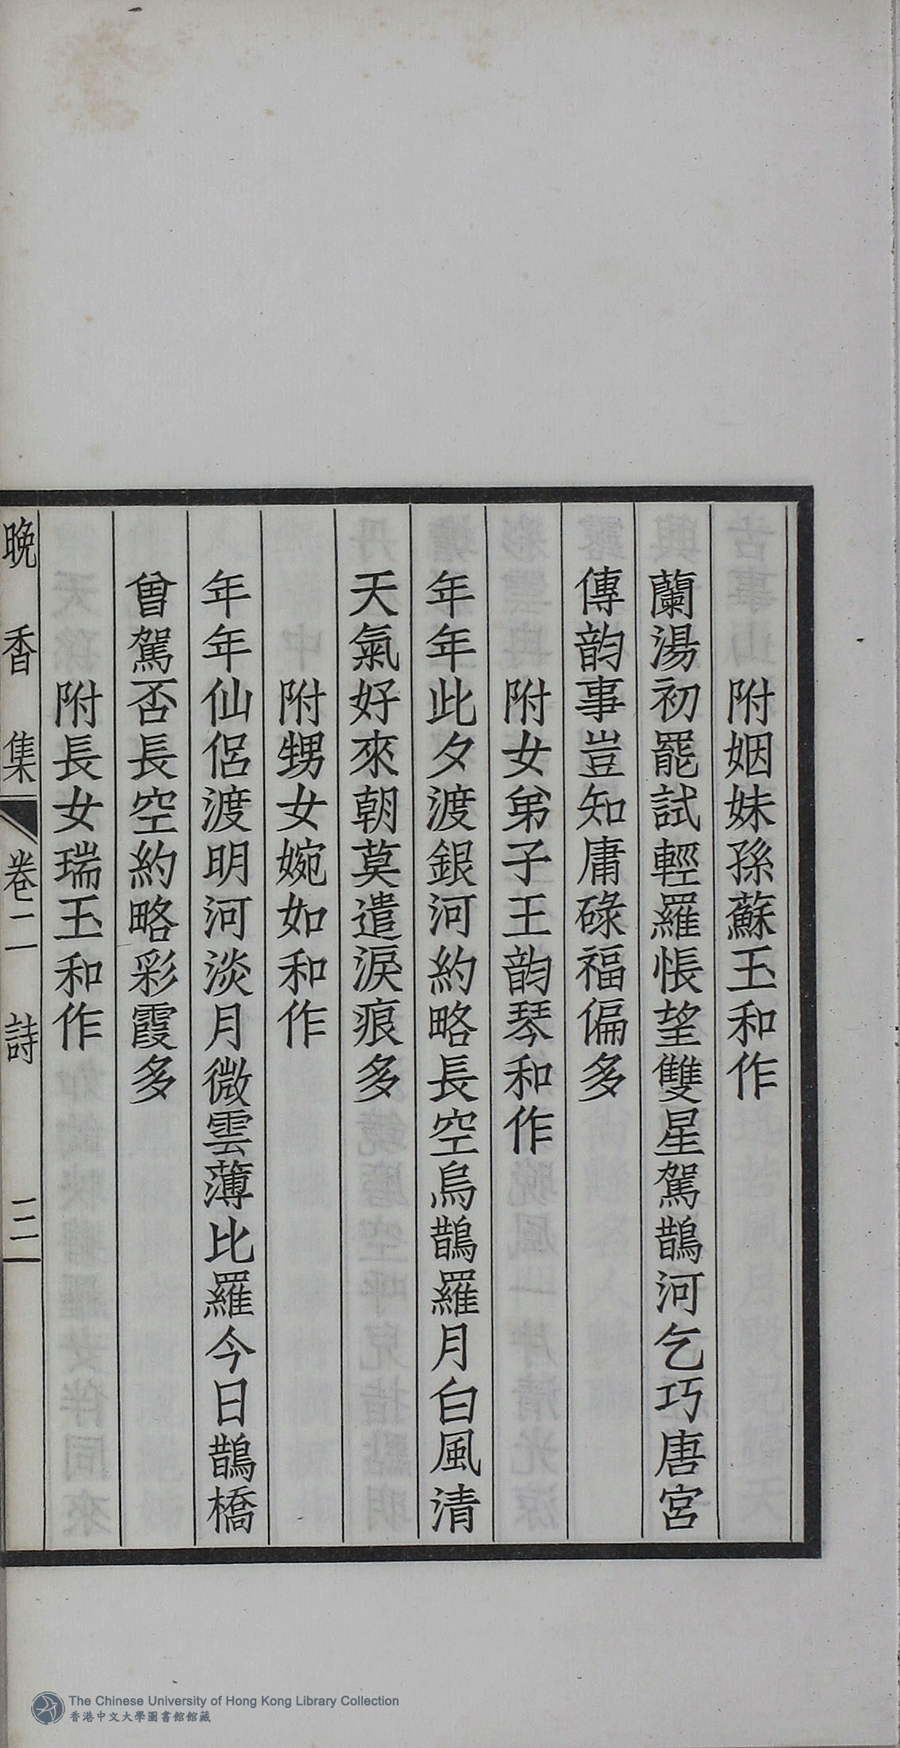 附姻妹孫蘇玉和作
蘭湯初罷試輕羅悵望雙星駕鵲河乞巧唐宮
傳韵事豈知庸碌福偏多
附女弟子王韵琴和作
年年此夕渡銀河約略長空烏鵲羅月白風清
天氣好來朝莫遣淚痕多
附甥女婉如和作
年年仙侶渡明河淡月微雲薄比羅今日鵲橋
曾駕否長空約略彩霞多
附長女瑞玉和作
晚香集 卷二 詩 三
The Chinese University of Hong Kong Library Collection
香港中文大學圖書館館藏